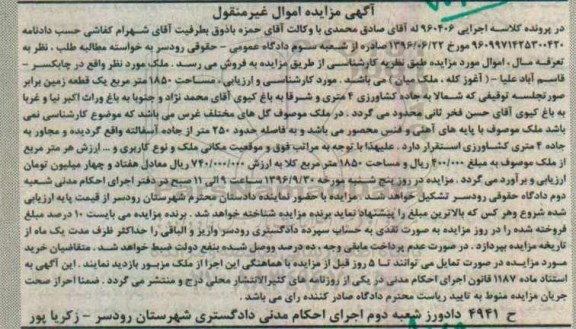 آگهی مزایده اموال غیرمنقول
در پرونده کلاسه اجرایی ۹۶۰۴۰۶ له آقای صادق محمدی با وکالت آقای حمزه باذوق بطرفیت آقای شهرام کفاشی حسب دادنامه
۹۶۰۹۹۷۱۴۲۵۳۰۰۴۲۰ مورخ ۱۳۹۶/۰۶/۲۲ صادره از شعبه سوم دادگاه عمومی - حقوقی رودسر به خواسته مطالبه طلب ، نظر به
تعرفه مال ، اموال مورد مزایده طبق نظریه کارشناسی از طریق مزایده به فروش می رسد . ملک مورد نظر واقع در چابکسر -
قاسم آباد علیا - ( آغوز کله ، ملک میان ) می باشید . مورد کارشناسی و ارزیابی ، مساحت ۱۸۵۰ متر مربع یک قطعه زمین برابر
صورتجلسه توقیفی که شمالا به جاده کشاورزی ۴ متری و شرقا به باغ کیوی آقای محمد نژاد و جنوبا به باغ وراث اکبر نیا و غربا
به باغ کیوی آقای حسن فخر ثانی محدود می گردد . در ملک موصوف گل های مختلف غرس می باشد که موضوع کارشناسی نمی
باشد ملک موصوف با پایه های آهنی و فنس محصور می باشد و به فاصله حدود ۲۵۰ متر از جاده آسفالته واقع گردیده و مجاور به
جاده ۴ متری کشاورزی استقرار دارد . علیهذا با توجه به مراتب فوق و موقعیت مکانی ملک و نوع کاربری و ... ارزش هر متر مربع
از ملک موصوف به مبلغ ۴۰۰/۰۰۰ ریال و مساحت ۱۸۵۰ متر مربع کلا به ارزش ۷۴۰/۰۰۰/۰۰۰ ریال معادل هفتاد و چهار میلیون تومان
ارزیابی و برآورد می گردد . مزایده در روز پنج شنبه مورخه ۱۳۹۶/۹/۳۰ ساعت ۹ الی ۱۱ صبح در دفتر اجرای احکام مدنی شعبه
دوم دادگاه حقوقی رودسر تشکیل خواهد شد . مزایده با حضور نماینده دادستان محترم شهرستان رودسر از قیمت پایه ارزیابی
شده شروع وهر کس که بالاترین مبلغ را پیشنهاد نماید برنده مزایده شناخته خواهد شد . برنده مزایده می بایست ۱۰ درصد مبلغ
فروخته شده را در روز مزایده به صورت نقدی به حساب سپرده دادگستری رودسر واریز و الباقی را حداکثر ظرف مدت یک ماه از
تاریخه مزایده بپردازد . در صورت عدم پرداخت مابقی وجه ، ده درصد ووصل شده بنفع دولت ضبط خواهد شد . متقاضیان خرید
مورد مزایده در صورت تمایل می توانند تا ۵ روز قبل از مزایده با هماهنگی این اجرا از ملک مزبور بازدید نمایند . این آگهی به
استناد ماده ۱۱۸۷ قانون اجرای احکام مدنی در یکی از روزنامه های کثیرالانتشار محلی درج و منتشر می گردد . ضمنا احراز صحت
جریان مزایده منوط به تایید ریاست محترم دادگاه صادر کننده رای می باشد .
ح ۴۹۴۱ دادورز شعبه دوم اجرای احکام مدنی دادگستری شهرستان رودسر - زکریا پور